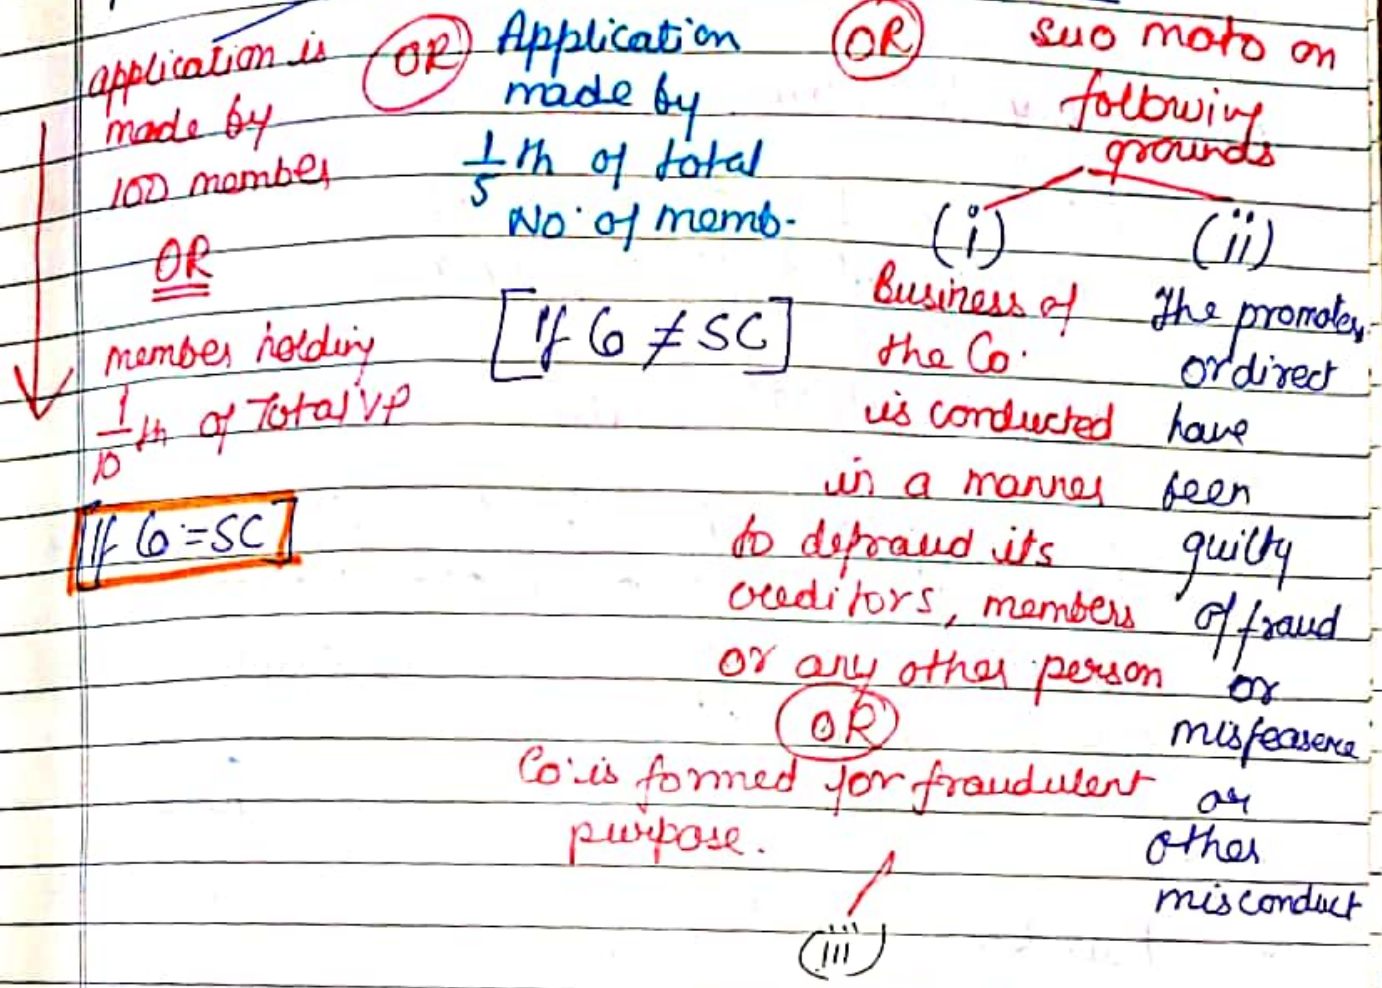 application is
made by
100 member
OR
member holding
1/10 th of Total VP
If Co = SC
OR
Application
made by
1/5 th of total
No. of memb.
[If Co ≠ SC]
OR
suo moto on
following
grounds
(i)
Business of
the Co.
is conducted
in a manner
to defraud its
creditors, members
or any other person
OR
Co. is formed for fraudulent
purpose.
(iii)
(ii)
The promoter
or direct
have
been
guilty
of fraud
or
misfeasence
or
other
misconduct